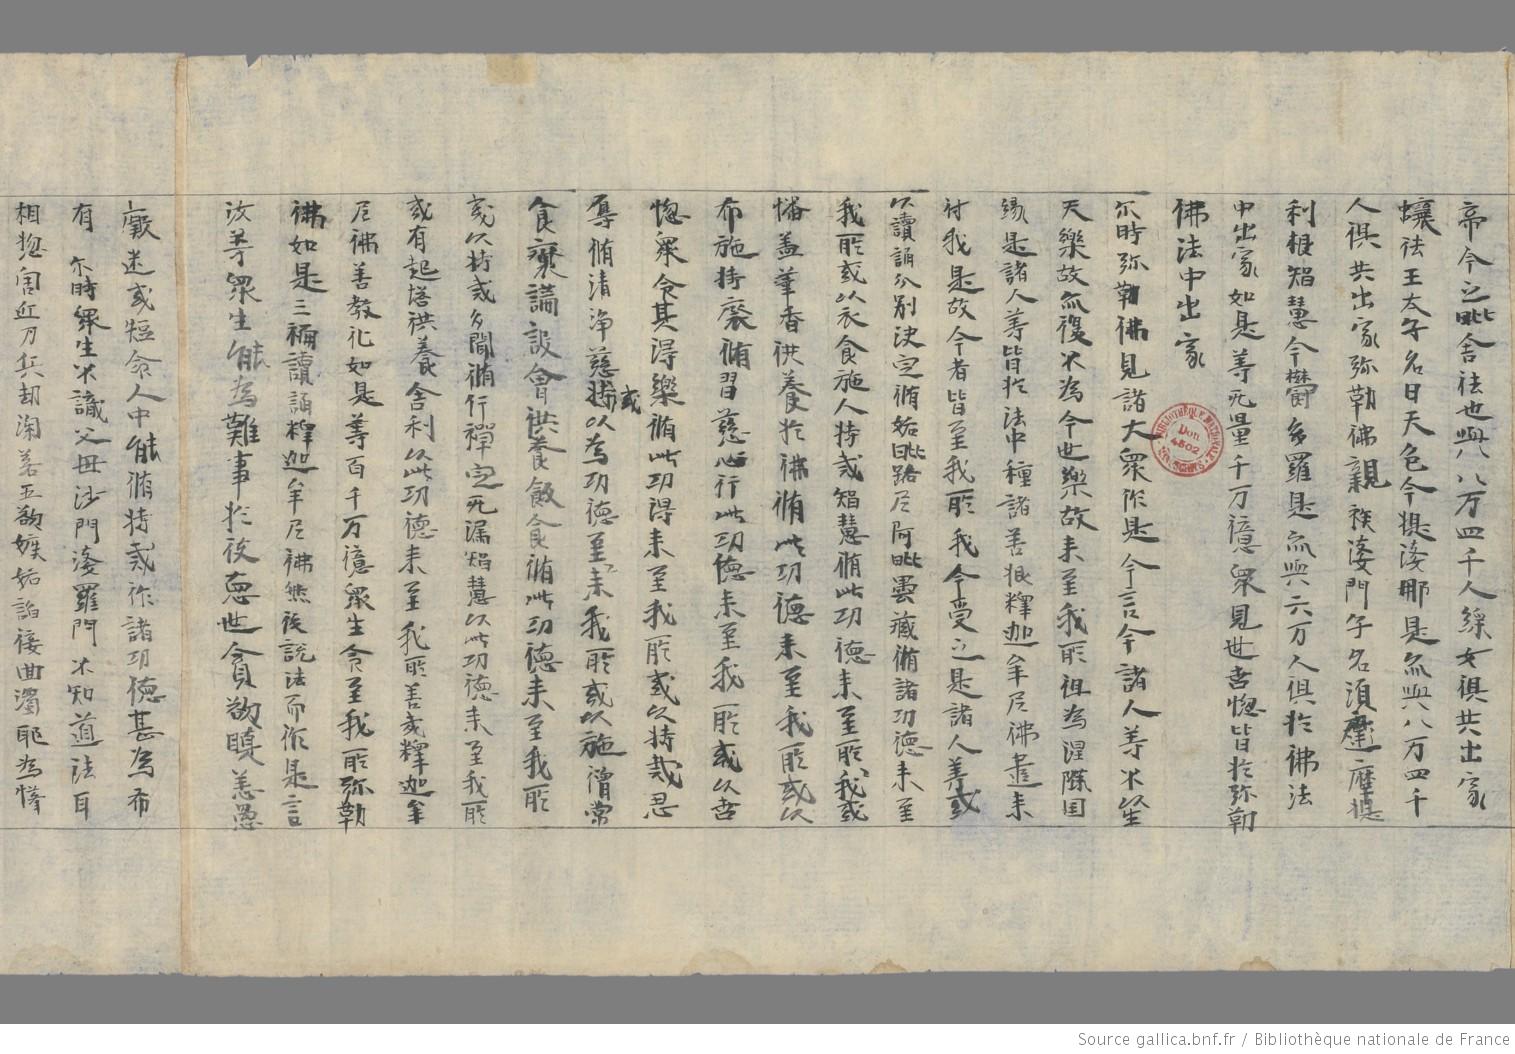 帝今之毗舍佉也與八万四千人綵女俱共出家
蠰佉王太子名曰天色今提婆那是亦與八万四千
人俱共出家弥勒佛親族婆門子名須摩提
利根智慧今欝多羅是亦與六万人俱於佛法
中出家如是等无量千万億眾見世苦惱皆於弥勒
佛法中出家
尒時弥勒佛見諸大眾作是今言今諸人等不以生
天樂故亦復不為今世樂故来至我所但為涅槃因
緣是諸人等皆於法中種諸善根釋迦牟尼佛遣来
付我是故今者皆至我所我今受之是諸人等或
以讀誦分別決定脩妬毗路尼阿毗曇藏脩諸功德来至
我所或以衣食施人持戒智慧脩此功德来至所我或
幡盖華香供養於佛脩此功德来至我所或以
布施持齋脩習慈心行此功德来至我所或以苦
惱眾令其得樂脩此功得来至我所或以持戒忍
辱脩清淨慈或以為功德至来我所或以施僧常
食齋講設會供養飯食脩此功德来至我所
或以持戒多聞脩行禪定无漏智慧以此功德来至我所
或有起塔供養舍利以此功德来至我所善哉釋迦牟
尼佛善教化如是等百千万億眾生令至我所弥勒
佛如是三稱讀誦釋迦牟尼佛然後說法而作是言
汝等眾生能為難事於彼惡世貪欲瞋恚愚
癡迷或短命人中能脩持戒作諸功德甚為希
有 尒時眾生不識父母沙門婆羅門不知道法
相惱害近刀兵劫深著五欲嫉妬諂佞曲濁耶為憐

Source gallica.bnf.fr / Bibliothèque nationale de France